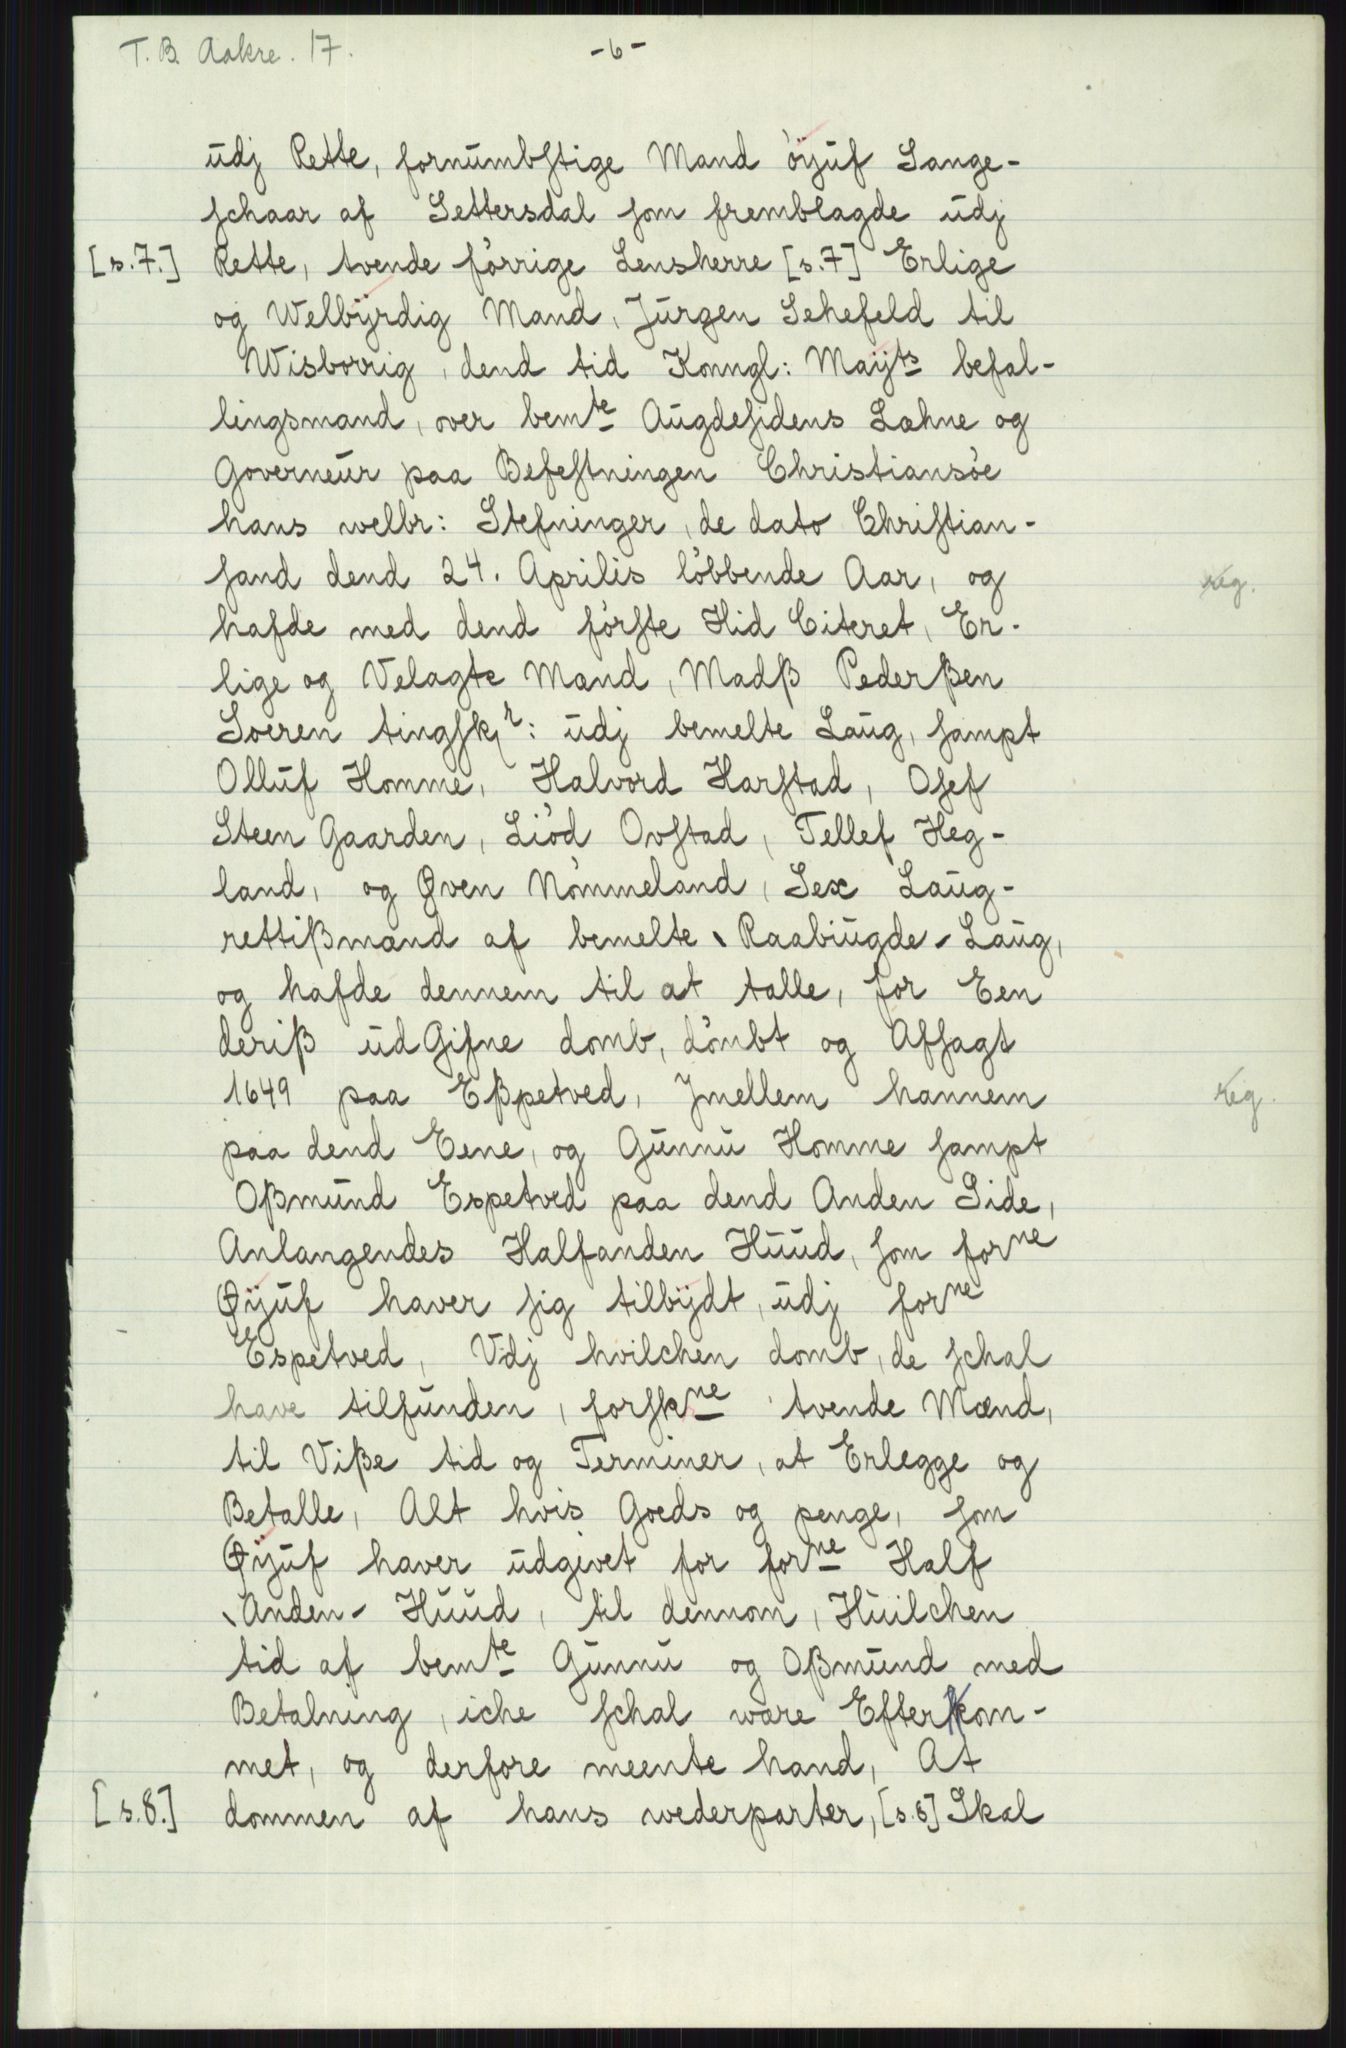 T.B. Aakre. 17.
-6-
udj Rette, fornumbstige Mand öÿuf Lange-
schaar af Settersdal som fremblagde udj
[s.7.] Rette, tvende förrige Lensherre [s.7] Erlige
og Welbÿrdig Mand, Jürgen Sehefeld til
Wisborrig, dend tid Konngl: Maÿts befal-
lingsmand, over bemte Augdesidens Læhne og
Governeur paa Befestningen Christiansöe
hans welbr: Stefninger, de dato Christian-
sand dend 24. Aprilis löbbende Aar, og
hafde med dend förste Hid Citeret, Er-
lige og Velagte Mænd, Madß Pederßen
Soeren tingskr: udj bemelte Laug, sampt
Olluf Homme, Halvord Harstad, Osef
Steen Gaarden, Liöd Ovstad, Tellef Heg-
land, og Øven Nömmeland, Sex Laug-
rettißmænd af bemelte Raabiugde-Laug,
og hafde dennem til at talle, for Een
deriß udGifne domb, dömbt og Afsagt
1649 paa Eßpetved, Jmellem hannem
paa dend Eene, og Gunnu Homme sampt
Oßmund Espetved paa dend Anden Side,
Anlangendes Halfanden Huud, som forne
Øÿuf haver sig tilbÿdt, udj forne
Espetved, Vdj hvilchen domb, de schal
have tilfunden, forskne tvende Mænd,
til Viße tid og Terminer, at Erlegge og
Betalle, Alt hvis Goeds og penge, som
Øÿuf haver udgivet for forne Half
Anden- Huud, til dennom, Huilchen
tid af bemte Gunnu og Oßmund med
Betalning, iche schal wære Efterkom-
met, og derfore meente hand, At
[s.8.] dommen af hans wederparter, [s.8] Skal
reg.
reg.